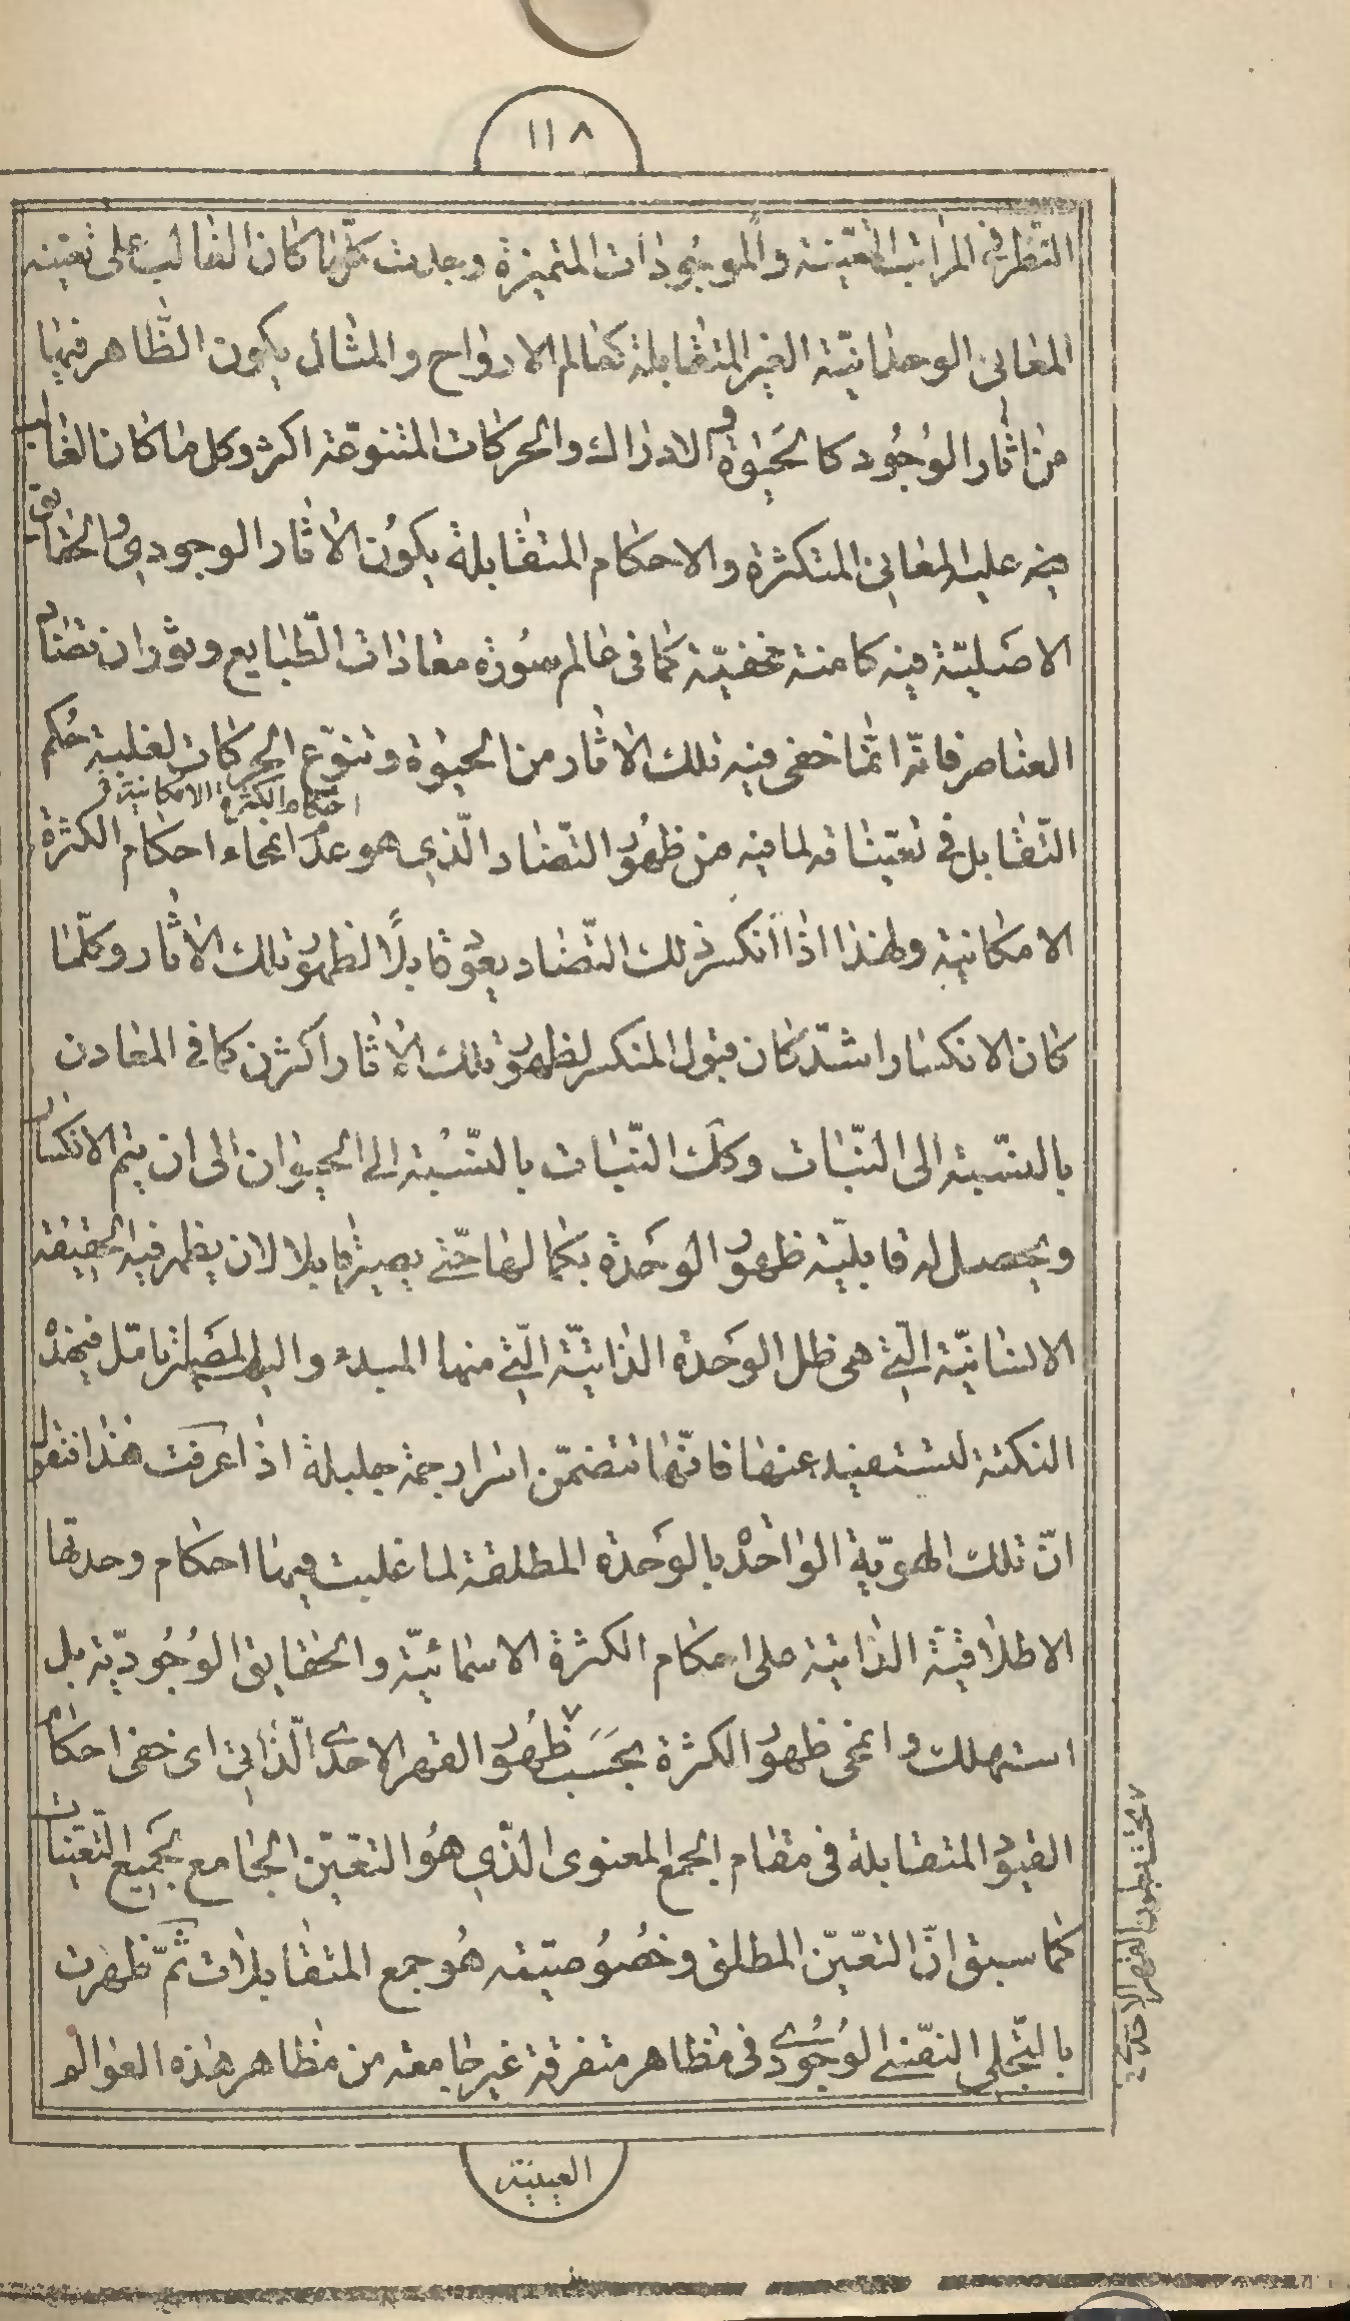 ١١٨
النّظر فى المراتب المتعيّنة والموجودات المتميزة وجدت كلّما كان الغالب على تعيّنه
المعانى الوحدانيّة الغير المتقابلة كعالم الارواح والمثال يكون الظّاهر فيها
من اثار الوجود كالحيوة و الادراك والحركات المتنوّعة اكثر وكل ما كان الغالب
فيه عليه المعانى المتكثرة والاحكام المتقابلة يكون الاثار الوجودى و الحقايق
الاصليّة فيه كامنة مخفيّة كما فى عالم سورة معاذات الطّبايع وثوران تضاد
العناصر فانّه انّما خفى فيه تلك الاثار من الحيوة وتنوّع الحركات لغلبة حكم
احكام الكثرة الامكانية
التّقابل فى تعيّناته لما فيه من ظهور التّضاد الّذى هو عدم انمحاء احكام الكثرة
الامكانية ولهذا اذا انكسر ذلك التّضاد يعود قابلاً لظهور تلك الاثار وكلّما
كان الانكسار اشدّ كان قبول المنكسر لظهور تلك الاثار اكثر ن كما فى المعادن
بالنّسبة الى النّبات وكك النّبات بالنّسبة الى الحيوان الى ان يتم الانكسار
ويحصل له قابليّة ظهور الوحدة بكمالها حتّى يصير قابلا لان يظهر فيه الحقيقة
الانسانيّة الّتى هى ظل الوحدة الذاتيّة الّتى منها المبدء واليها المصير تامّل فى هذه
النكتة لتستفيد عنها فانّها تتضمّن اسرار جمة جليلة اذا عرفت هذا فنقول
انّ تلك الهويّة الواحدة بالوحدة المطلقة لما غلبت فيها احكام وحدتها
الاطلاقيّة الذاتية على احكام الكثرة الاسمائيّة والحقايق الوجوديّة بل
استهلك و انمحى ظهور الكثرة بحسب ظهور القهر الاحدى الذّاتى اى خفى احكام
القيود المتقابلة فى مقام الجمع المعنوى الّذى هو التعيّن الجامع لجميع التّعيّنات
كما سبق انّ التعيّن المطلق وخصوصيّته هو جمع المتقابلات ثمّ ظهرت
بالتّجلى النفسى الوجودى فى مظاهر متفرقة غير جامعة من مظاهر هذه العوالم
العينية
بحسب بطون القهر الاحدى